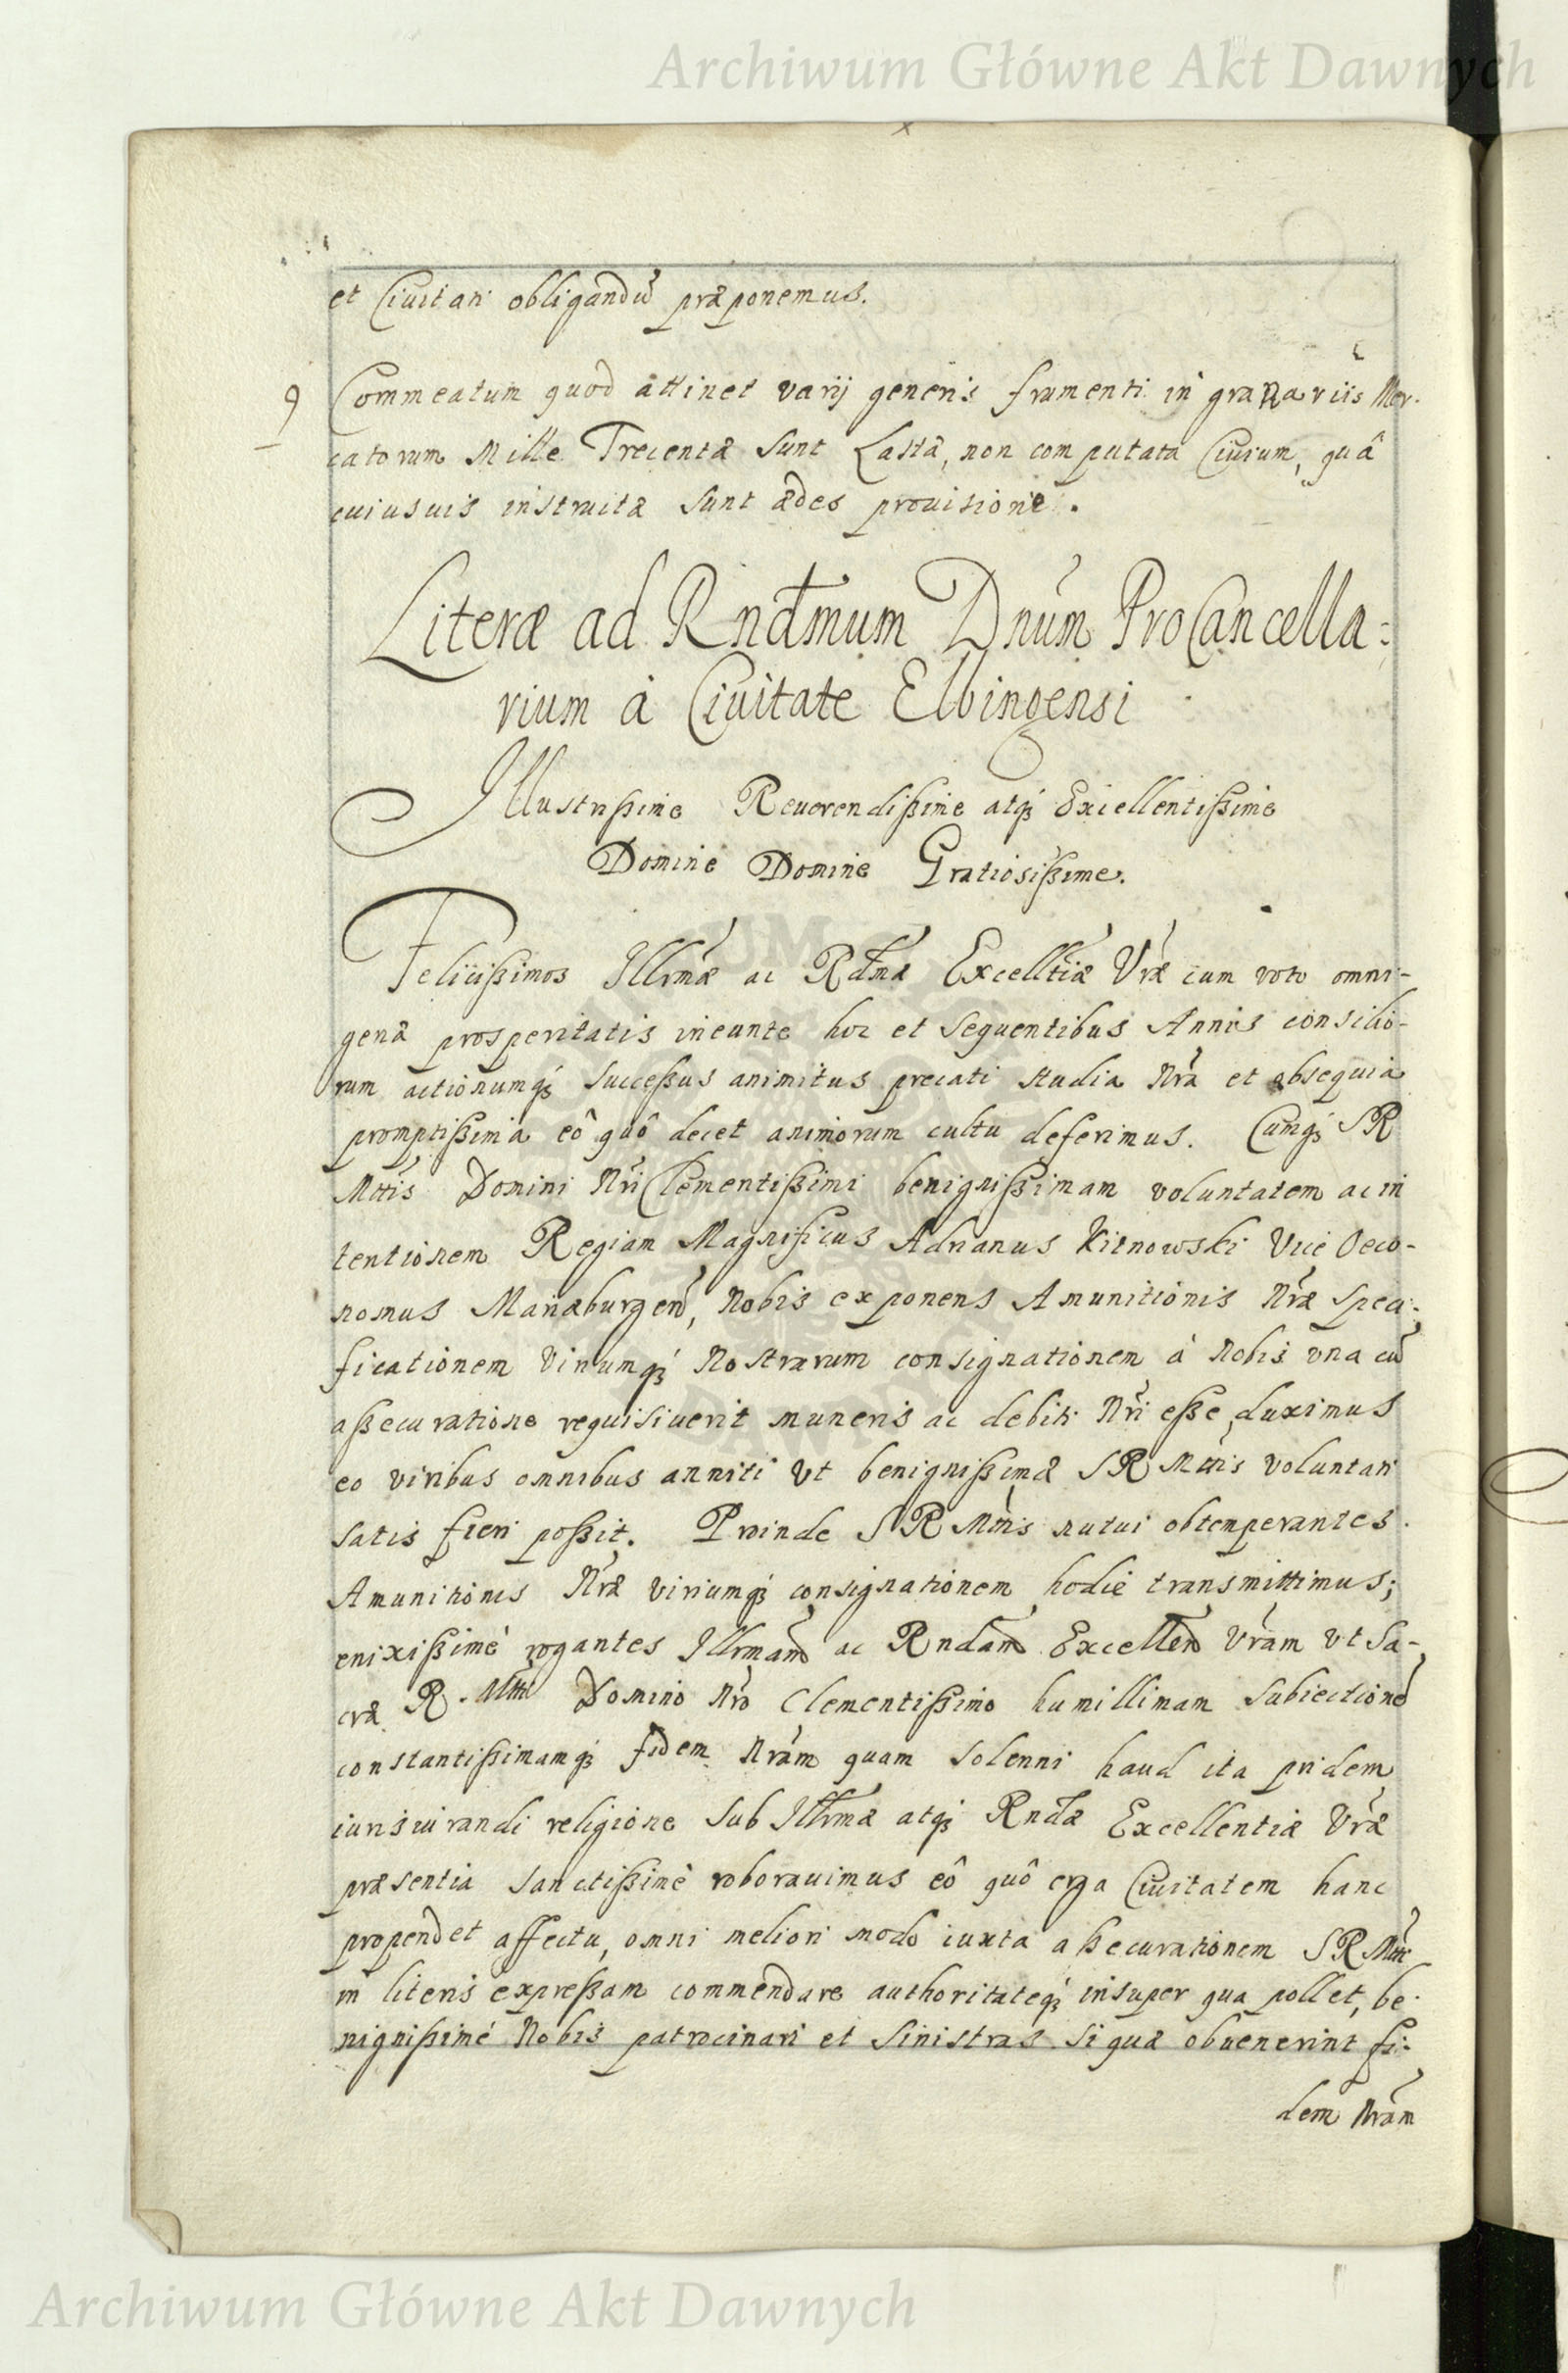 Archiwum Główne Akt Dawnych
et Ciuitati obligandũ præponemus.
9 Commeatum quod attinet varij generis frumenti in granariis Mer-
catorum Mille Trecentæ sunt Lastæ, non computata Ciuium, quâ
cuiusuis instructæ sunt ædes prouisione.
Literæ ad Rndmum Dnum ProCancella=
rium à Ciuitate Elbingensi
Illustrißime Reuerendißime atq; Excellentißime
Domine Domine Gratiosißime.
Felicißimos Illrmæ ac Rdmæ Excelltiæ Vræ cum voto omni-
genæ prosperitatis ineunte hoc et sequentibus Annis consilio-
rum actionumq; succeßus animitus precati studia Nra et obsequia
promptißima eô quô decet animorum cultu deferimus. Cumq; SR
Mttis Domini Nri Clementißimi benignißimam voluntatem ac in
tentionem Regiam Magnificus Adrianus Kitnowski Vice Oeco-
nomus Mariæburgen, Nobis exponens Amunitionis Nræ speci-
ficationem Viriumq; Nostrarum consignationem à Nobis vna cũ
aßecuratione requisiuerit muneris ac debiti Nri eße duximus
eo viribus omnibus anniti vt benignißimæ SR Mttis voluntati
satis fieri poßit. Proinde SR Mttis nutui obtemperantes
Amunitionis Nræ viriumq; consignationem hodie transmittimus;
enixißimè rogantes Illrmam ac Rndam Excellen Vram vt Sa-
cræ R. Mtti Domino Nro Clementißimo humillimam subiectionẽ
constantißimamq; fidem Nram quam solenni haud ita pridem
iurisiurandi religione sub Illrmæ atq; Rndæ Excellentiæ Vræ
præsentia sanctißimè roborauimus eô quô erga Ciuitatem hanc
propendet affectu, omni meliori modo iuxta aßecurationem SR Mttis
in literis expreßam commendare authoritateq; insuper qua pollet, be-
nignißimè Nobis patrocinari et sinistras si quæ obuenerint fi-
dem Nram
Archiwum Główne Akt Dawnych